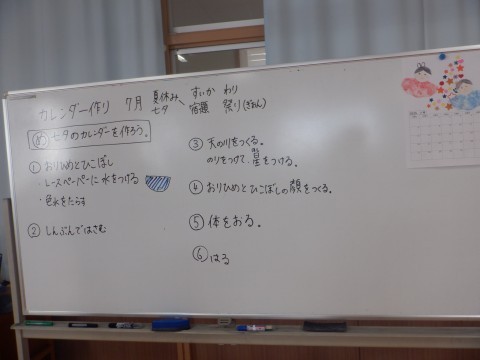 カレンダー作り 7月 夏休み すいか わり
七夕 宿題 祭り(ぎおん)
め 七夕のカレンダーを作ろう。
① おりひめとひこぼし
・レースペーパーに水をつける
・色水をたらす
② しんぶんではさむ
③ 天の川をつくる。
のりをつけて、星をつける。
④ おりひめとひこぼしの顔をつくる。
⑤ 体をおる。
⑥ はる